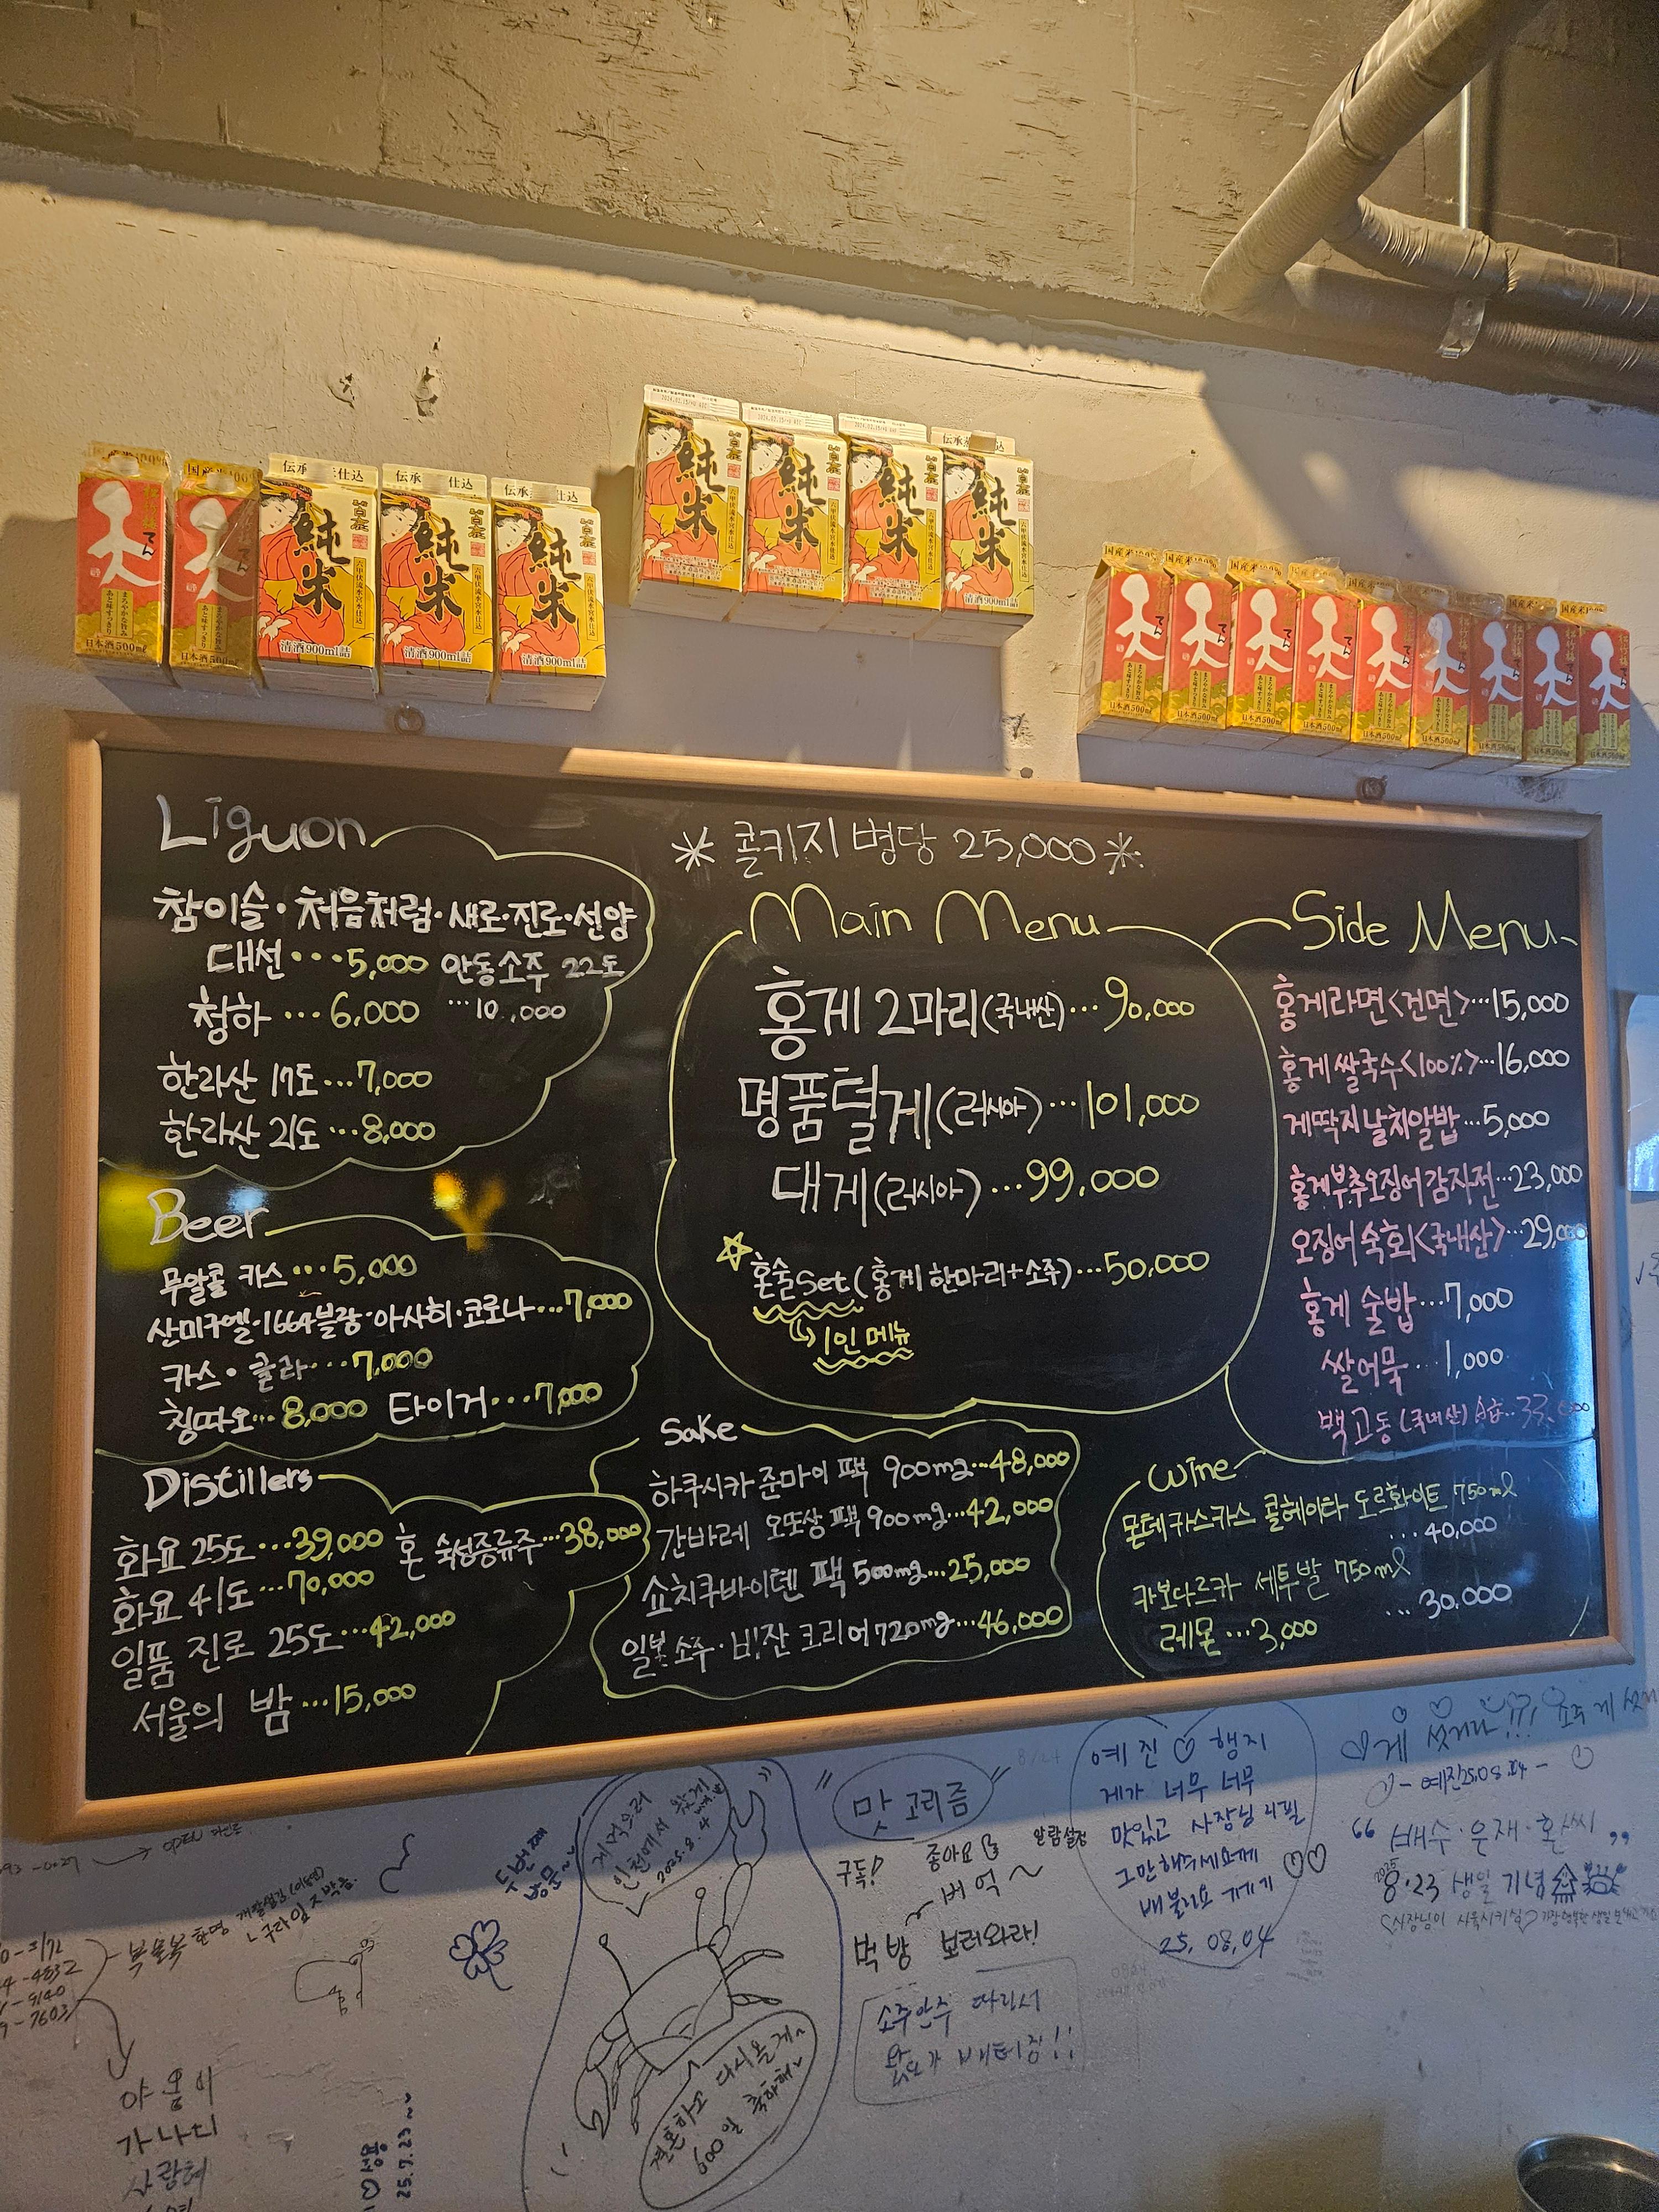 国産米100%
松竹梅
天
てん
まろやかな旨み
あと味すっきり
日本酒500ml
伝承 仕込
純米
六甲伏流水宮水仕込
清酒900ml詰
Liguon
참이슬·처음처럼·새로·진로·선양
대선···5,000 안동소주 22도
청하···6,000 ···10,000
한라산 17도···7,000
한라산 21도···8,000
Beer
무알콜 카스···5,000
산미구엘·1664블랑·아사히·코로나···7,000
카스·클라···7,000
칭따오···8,000 타이거···7,000
Distillers
화요 25도···39,000 혼 숙성증류주···38,000
화요 41도···70,000
일품 진로 25도···42,000
서울의 밤···15,000
* 콜키지 병당 25,000 *
Main Menu
홍게 2마리(국내산)···90,000
명품털게(러시아)···101,000
대게(러시아)···99,000
혼술Set(홍게 한마리+소주)···50,000
1인 메뉴
Sake
하쿠시카 준마이 팩 900mg···48,000
간바레 오또상 팩 900mg···42,000
쇼치쿠바이텐 팩 500mg···25,000
일본소주·비잔 크리어 720mg···46,000
Side Menu
홍게라면<건면>···15,000
홍게쌀국수<100%>···16,000
게딱지날치알밥···5,000
홍게부추오징어감자전···23,000
오징어숙회<국내산>···29,000
홍게 술밥···7,000
쌀어묵···1,000
백고동(국내산)
Wine
몬테카스카스 콜헤이타 도르화이트 750ml
···40,000
카보다르카 세투발 750ml
···30,000
레몬···3,000
두번째
방문~
게먹으러
인천에서 왔게
2025.8.4
결혼하고 다시올게~
600일 축하해~
" 맛고리즘 "
구독! 좋아요 알람설정
버억~
먹방 보러와라!
소주안주 따라서
배터짐!!
예진♡행지
게가 너무 너무
맛있고 사장님 리필
그만해주세요께
배불러요 게게기
25.08.04
게 맛거라!!!
-예진25.08.24-
"배수·은재·혼씨"
2025
8.23 생일 기념
25.7.23~
야옹이
가나디
사랑해